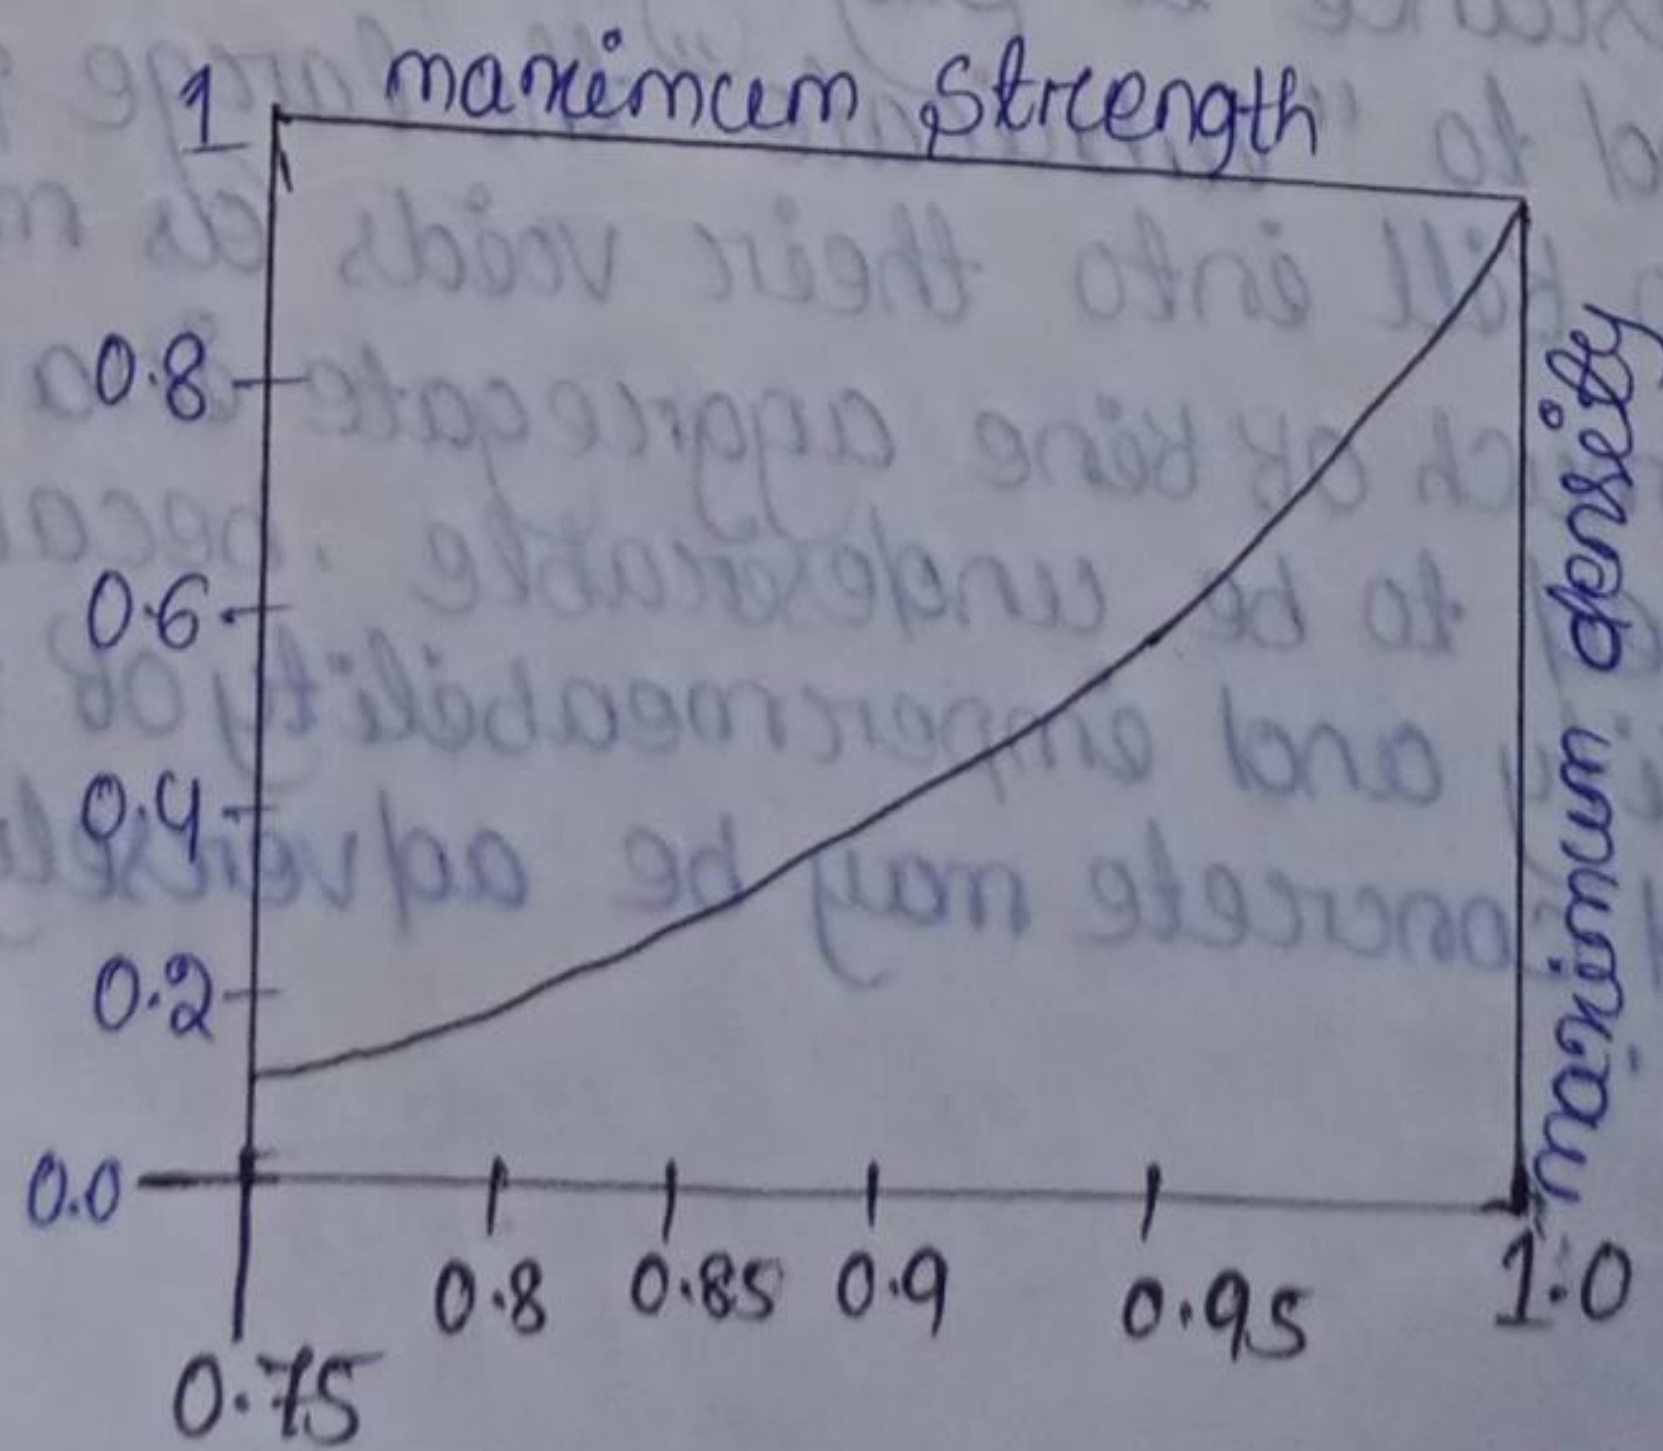 maximum strength
1
0.8
0.6
0.4
0.2
0.0
0.75
0.8 0.85 0.9 0.95 1.0
maximum density